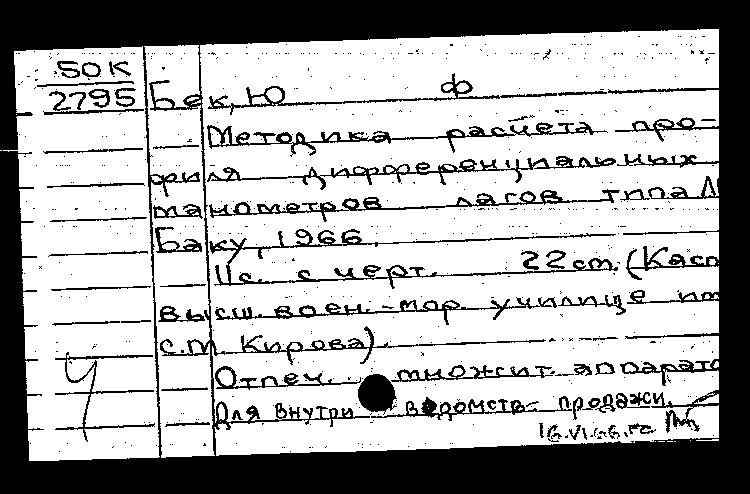 50К
2795 Бек, Ю ф
Методика расчета про-
филя дифференциальных
манометров лагов типа
Баку, 1966.
11с. с черт. 22 см. (Касп
высш. воен.-мор. училище им
с.м. Кирова).
Отпеч. множит. аппарато
Для внутри ведомств- продажи.
16.VI.66.
Ч